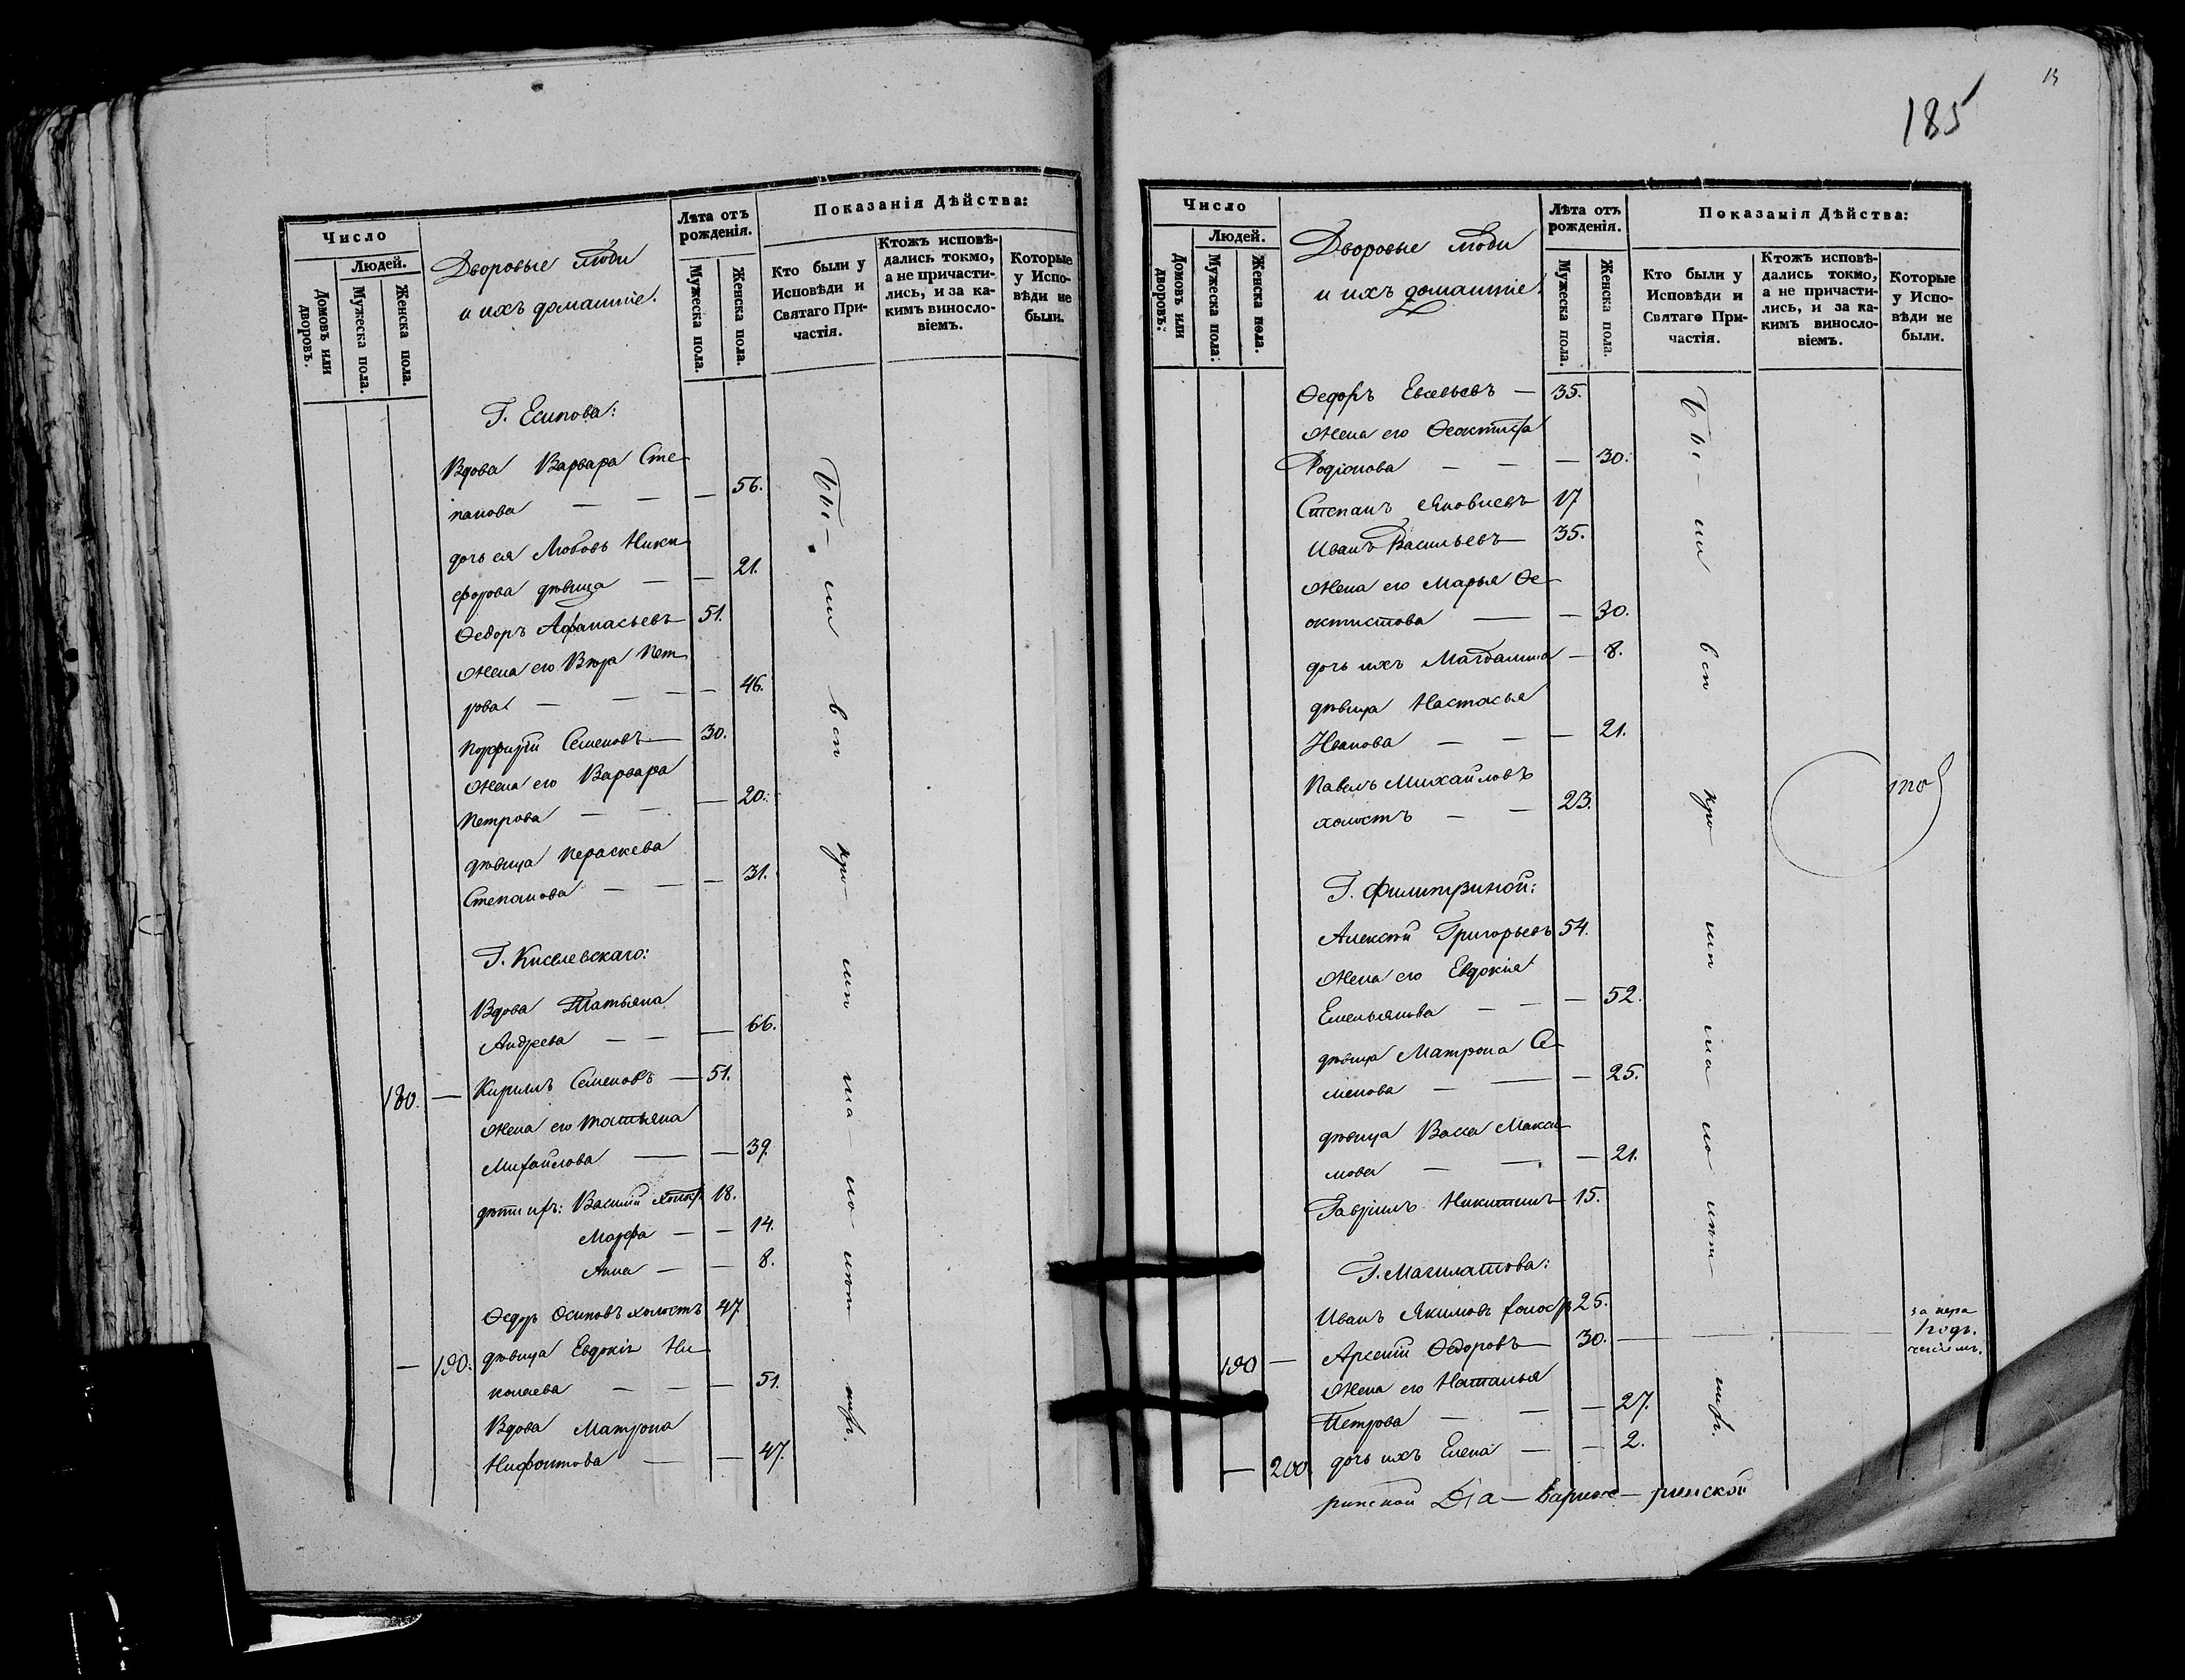 Число
Людей.
Домовъ или дворовъ.
Мужеска пола.
Женска пола.
Дворовые люди
и ихъ домашніе.
Лѣта отъ рожденія.
Мужеска пола.
Женска пола.
Показанія Дѣйства:
Кто были у Исповѣди и Святаго Причастія.
Ктожъ исповѣдались токмо, а не причастились, и за какимъ винословіемъ.
Которые у Исповѣди не были.
Г. Есипова:
Вдова Варвара Сте
панова — — — 56.
дочь ея Любовь Ники
форова дѣвица — — 21.
Ѳедоръ Аѳанасьевъ 51.
Жена его Вѣра Пет
рова — — — 46.
Порфирій Семеновъ — 30.
Жена его Варвара
Петрова — — — 20.
дѣвица Пераскева
Степанова — — — 31.
Г. Киселевскаго:
Вдова Татьяна
Андреева — — — 66.
180. — Кирилъ Семеновъ — 51.
Жена его Татьяна
Михайлова — — 39.
дѣти ихъ: Василій холос 18.
Марѳа — — 14.
Анна — — 8.
Ѳедоръ Осиповъ холостъ 47
— 190. дѣвица Евдокія Ни
колаева — — — 51.
Вдова Матрона
Нифонтова — — 47.
Бы — ли всѣ кро мѣ ма ло лѣт
185
Число
Людей.
Домовъ или дворовъ.
Мужеска пола.
Женска пола.
Дворовые люди
и ихъ домашніе.
Лѣта отъ рожденія.
Мужеска пола.
Женска пола.
Показанія Дѣйства:
Кто были у Исповѣди и Святаго Причастія.
Ктожъ исповѣдались токмо, а не причастились, и за какимъ винословіемъ.
Которые у Исповѣди не были.
Ѳедоръ Евсевьевъ — 35.
Жена его Ѳеоктиста
Родіонова — — — 30.
Степанъ Яковлевъ 17
Иванъ Васильевъ — 35.
Жена его Марья Ѳе
октистова — — 30.
дочь ихъ Магдалина — 8.
дѣвица Настасья
Иванова — — — 21.
Павелъ Михайловъ
холостъ — — 23.
Г. Филитриной:
Алексѣй Григорьевъ 54.
Жена его Евдокія
Емельянова — — — 52.
дѣвица Матрона Се
менова — — — 25.
дѣвица Васса Макси
мова — — — 21.
Гавріилъ Никитинъ 15.
Г. Магилатова:
Иванъ Якимовъ холос 25.
190 — Арсеній Ѳедоровъ — 30. —
за нера
Жена его Наталья
Петрова — — — 27.
— 200 дочь ихъ Елена — — 2.
Бы — ли всѣ кро мѣ ма ло лѣт